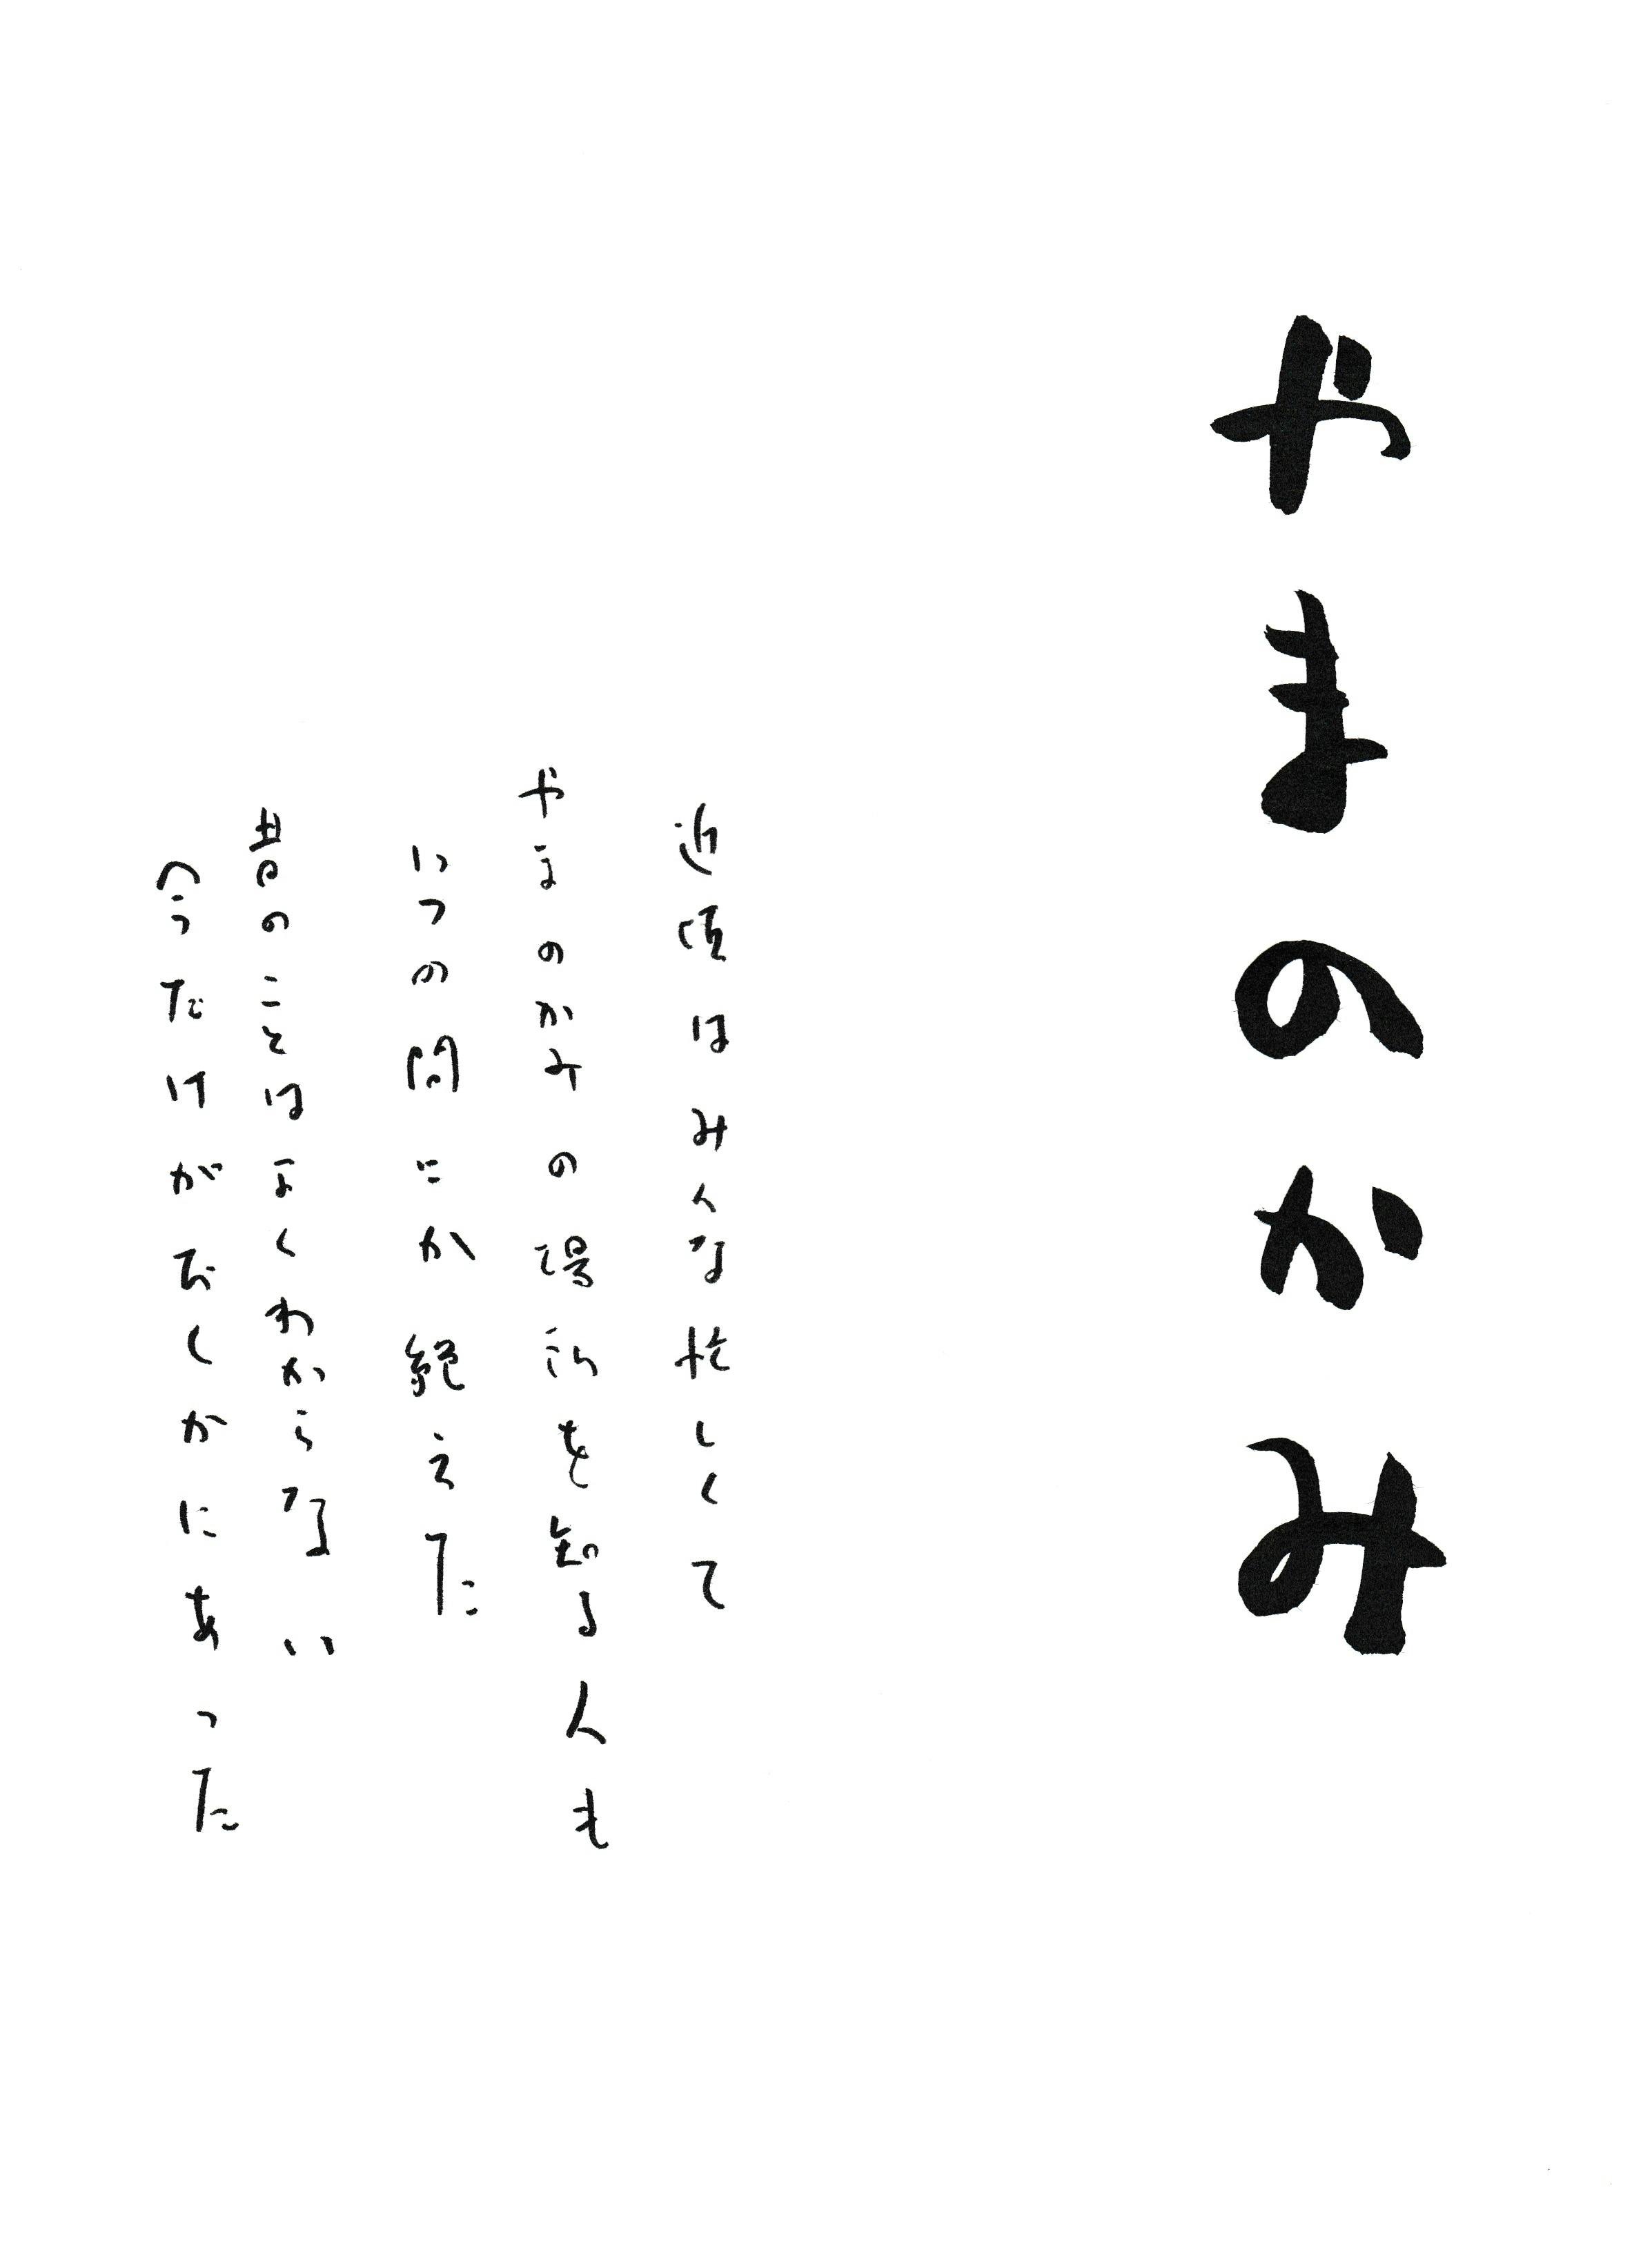 やまのかみ
近頃はみんな忙しくて
やまのかみの場所を知る人も
いつの間にか絶えた
昔のことはよくわからない
今だけがたしかにあった